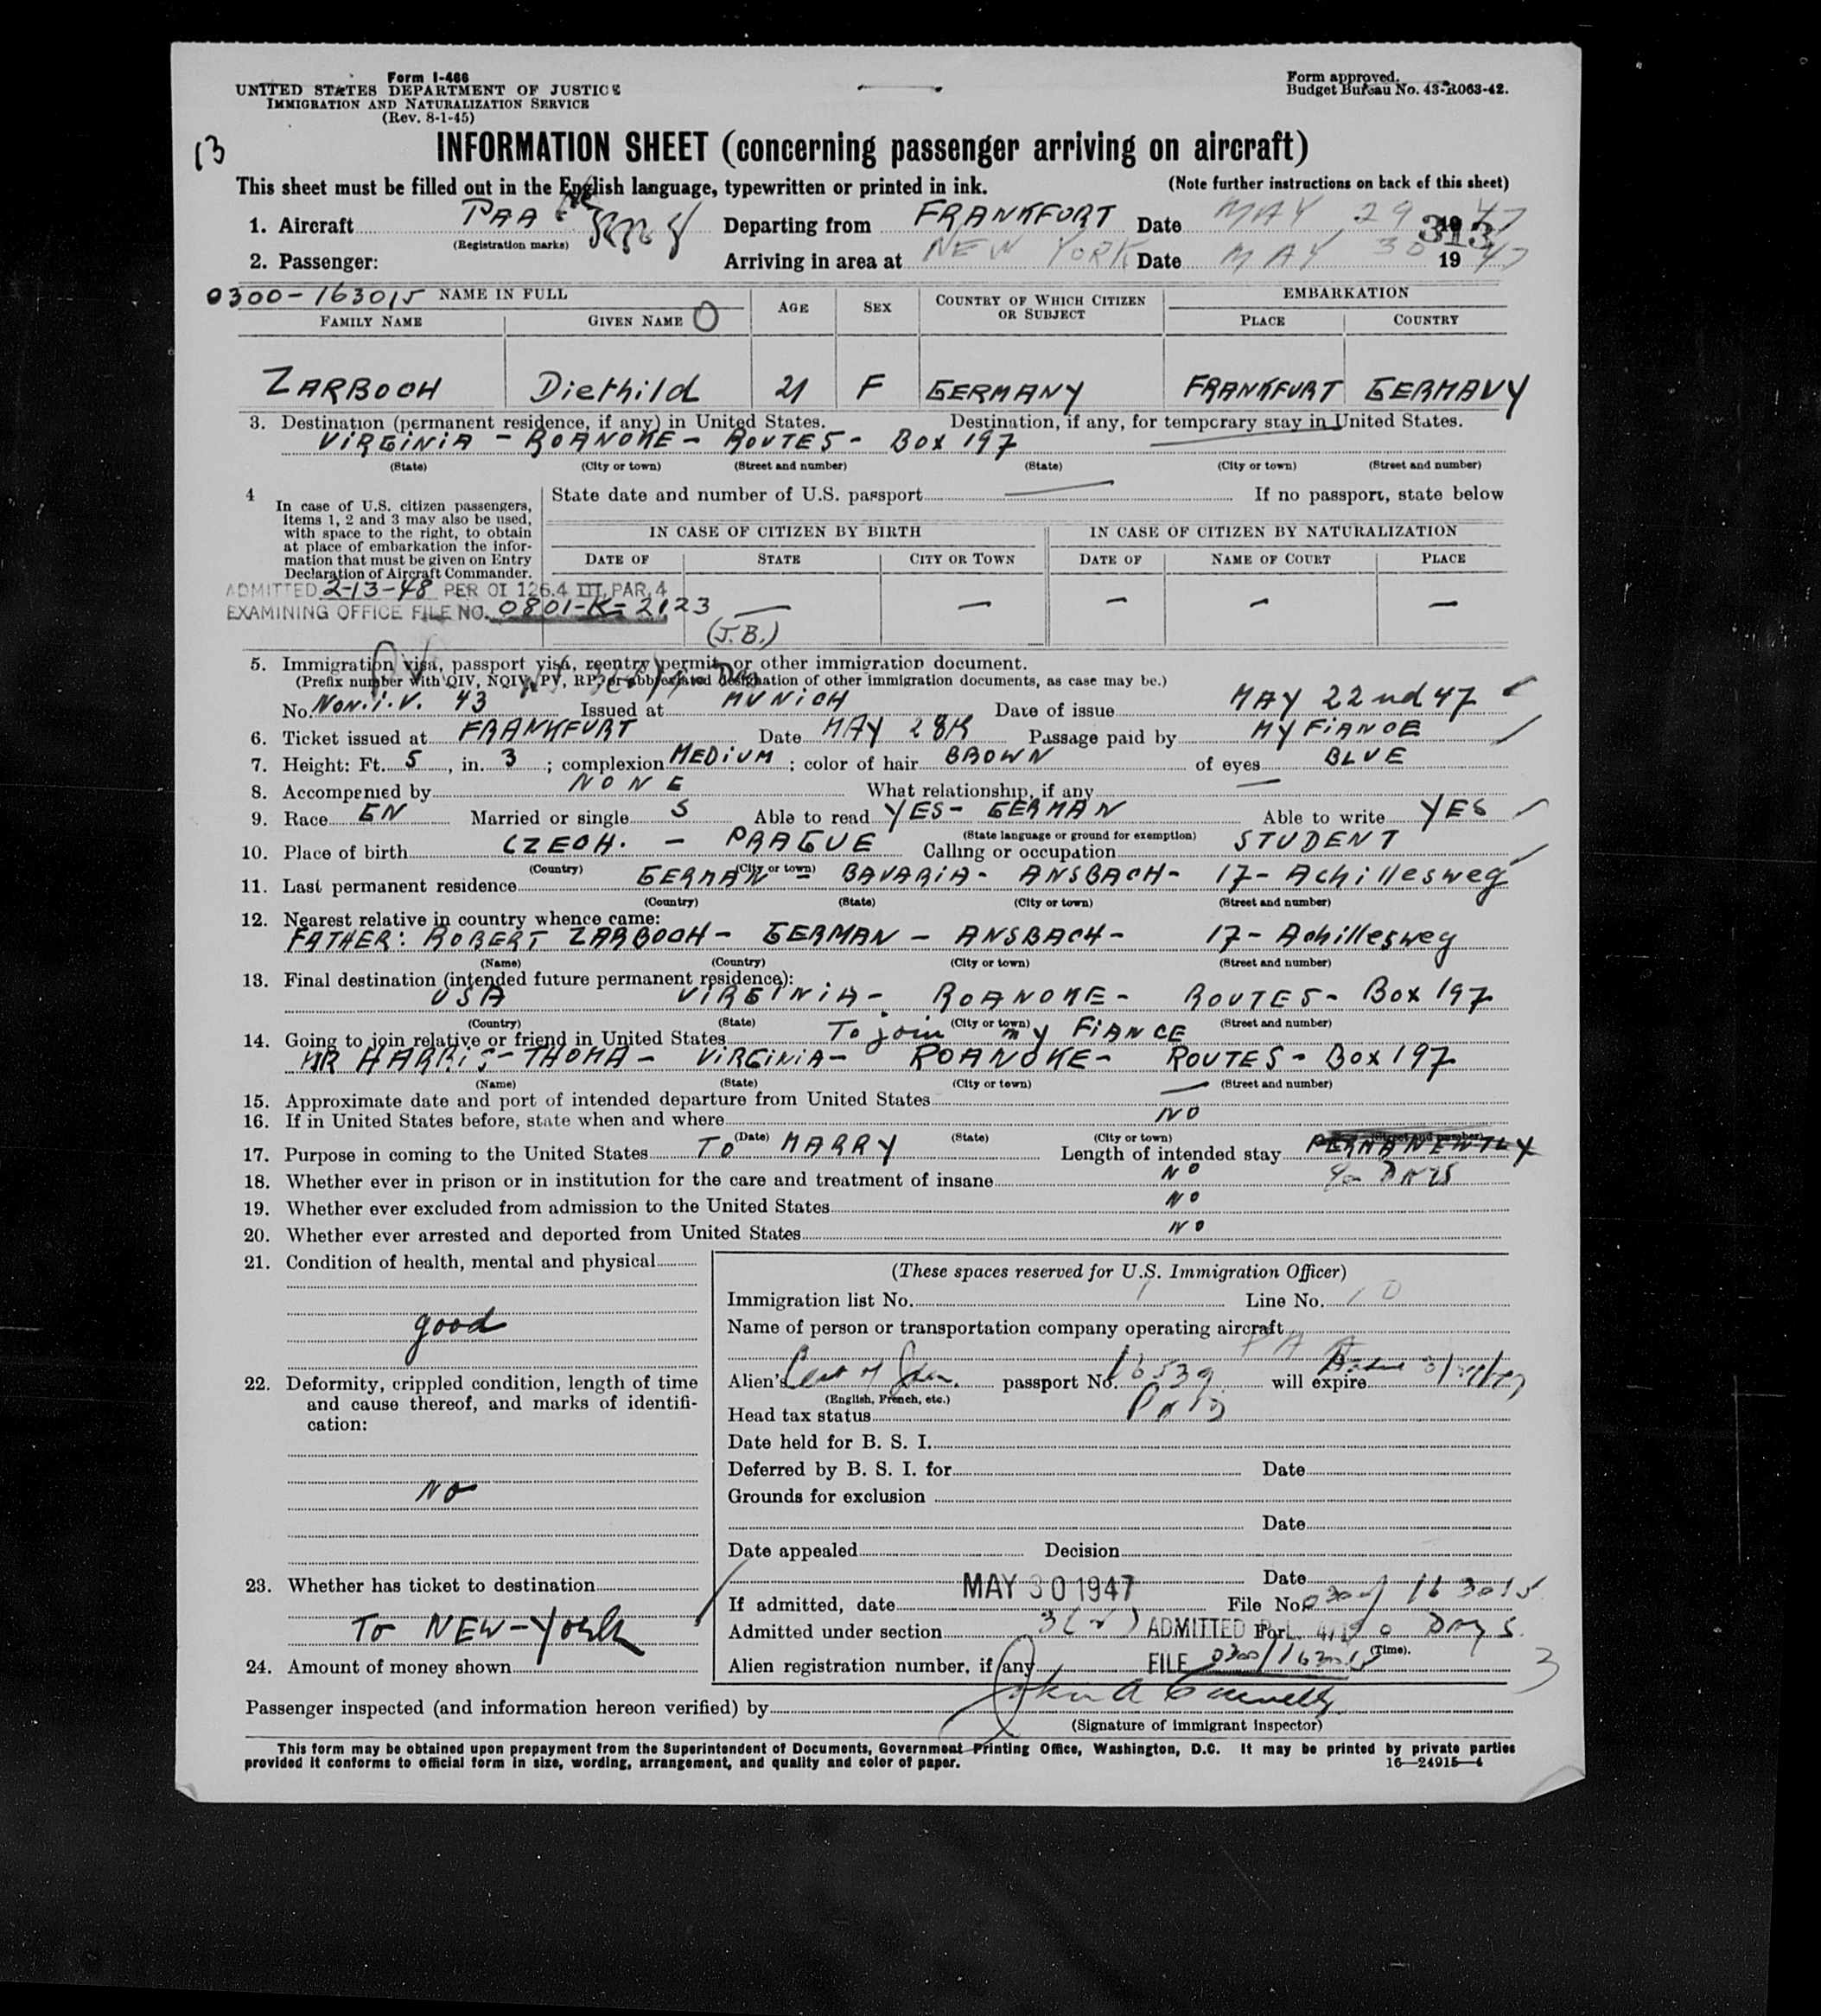 Form I-466
UNITED STATES DEPARTMENT OF JUSTICE
IMMIGRATION AND NATURALIZATION SERVICE
(Rev. 8-1-45)
Form approved.
Budget Bureau No. 43-R063-42.
13
INFORMATION SHEET (concerning passenger arriving on aircraft)
This sheet must be filled out in the English language, typewritten or printed in ink. (Note further instructions on back of this sheet)
1. Aircraft PAA Departing from FRANKFURT Date MAY 29 1947
(Registration marks)
313
2. Passenger: Arriving in area at NEW YORK Date MAY 30 1947
0300-163015 NAME IN FULL AGE SEX COUNTRY OF WHICH CITIZEN OR SUBJECT EMBARKATION
FAMILY NAME GIVEN NAME PLACE COUNTRY
ZARBOCH Diethild 21 F GERMANY FRANKFURT GERMANY
3. Destination (permanent residence, if any) in United States. Destination, if any, for temporary stay in United States.
VIRGINIA - ROANOKE - ROUTE 5 - Box 197
(State) (City or town) (Street and number) (State) (City or town) (Street and number)
4 In case of U.S. citizen passengers, items 1, 2 and 3 may also be used, with space to the right, to obtain at place of embarkation the information that must be given on Entry Declaration of Aircraft Commander.
State date and number of U.S. passport If no passport, state below
IN CASE OF CITIZEN BY BIRTH IN CASE OF CITIZEN BY NATURALIZATION
DATE OF STATE CITY OR TOWN DATE OF NAME OF COURT PLACE
ADMITTED 2-13-48 PER OI 126.4 III, PAR. 4
EXAMINING OFFICE FILE NO. 0801-K-2123
(J.B.)
5. Immigration visa, passport visa, reentry permit, or other immigration document.
(Prefix number with QIV, NQIV, PV, RP, or abbreviated designation of other immigration documents, as case may be.)
No. NON.I.V. 43 Issued at MUNICH Date of issue MAY 22nd 47
6. Ticket issued at FRANKFURT Date MAY 28th Passage paid by MY FIANCE
7. Height: Ft. 5, in. 3; complexion MEDIUM; color of hair BROWN of eyes BLUE
8. Accompanied by NONE What relationship, if any —
9. Race GN Married or single S Able to read YES - GERMAN Able to write YES
(State language or ground for exemption)
10. Place of birth CZECH. - PRAGUE Calling or occupation STUDENT
(Country) (City or town)
11. Last permanent residence GERMAN - BAVARIA - ANSBACH - 17 - Achillesweg
(Country) (State) (City or town) (Street and number)
12. Nearest relative in country whence came:
FATHER: ROBERT ZARBOCH - GERMAN - ANSBACH - 17 - Achillesweg
(Name) (Country) (City or town) (Street and number)
13. Final destination (intended future permanent residence):
USA VIRGINIA - ROANOKE - ROUTE 5 - Box 197
(Country) (State) (City or town) (Street and number)
14. Going to join relative or friend in United States To join my FIANCE
MR HARRIS - THOMA - VIRGINIA - ROANOKE - ROUTE 5 - Box 197
(Name) (State) (City or town) (Street and number)
15. Approximate date and port of intended departure from United States —
16. If in United States before, state when and where NO
(Date) (State) (City or town) (Street and number)
17. Purpose in coming to the United States TO MARRY Length of intended stay PERMANENTLY
18. Whether ever in prison or in institution for the care and treatment of insane NO DAYS
19. Whether ever excluded from admission to the United States NO
20. Whether ever arrested and deported from United States NO
21. Condition of health, mental and physical
good
22. Deformity, crippled condition, length of time and cause thereof, and marks of identification:
NO
23. Whether has ticket to destination
To NEW-York
24. Amount of money shown
(These spaces reserved for U.S. Immigration Officer)
Immigration list No. 1 Line No. 10
Name of person or transportation company operating aircraft
PAA
Alien's passport No. 16539 will expire
(English, French, etc.)
Head tax status Paid
Date held for B. S. I.
Deferred by B. S. I. for Date
Grounds for exclusion
Date
Date appealed Decision
Date
If admitted, date MAY 30 1947 File No. 0300/163015
Admitted under section 3(2) ADMITTED For Days
(Time).
Alien registration number, if any FILE 0300/163015
3
Passenger inspected (and information hereon verified) by John A
(Signature of immigrant inspector)
This form may be obtained upon prepayment from the Superintendent of Documents, Government Printing Office, Washington, D.C. It may be printed by private parties
provided it conforms to official form in size, wording, arrangement, and quality and color of paper. 16—24915-4